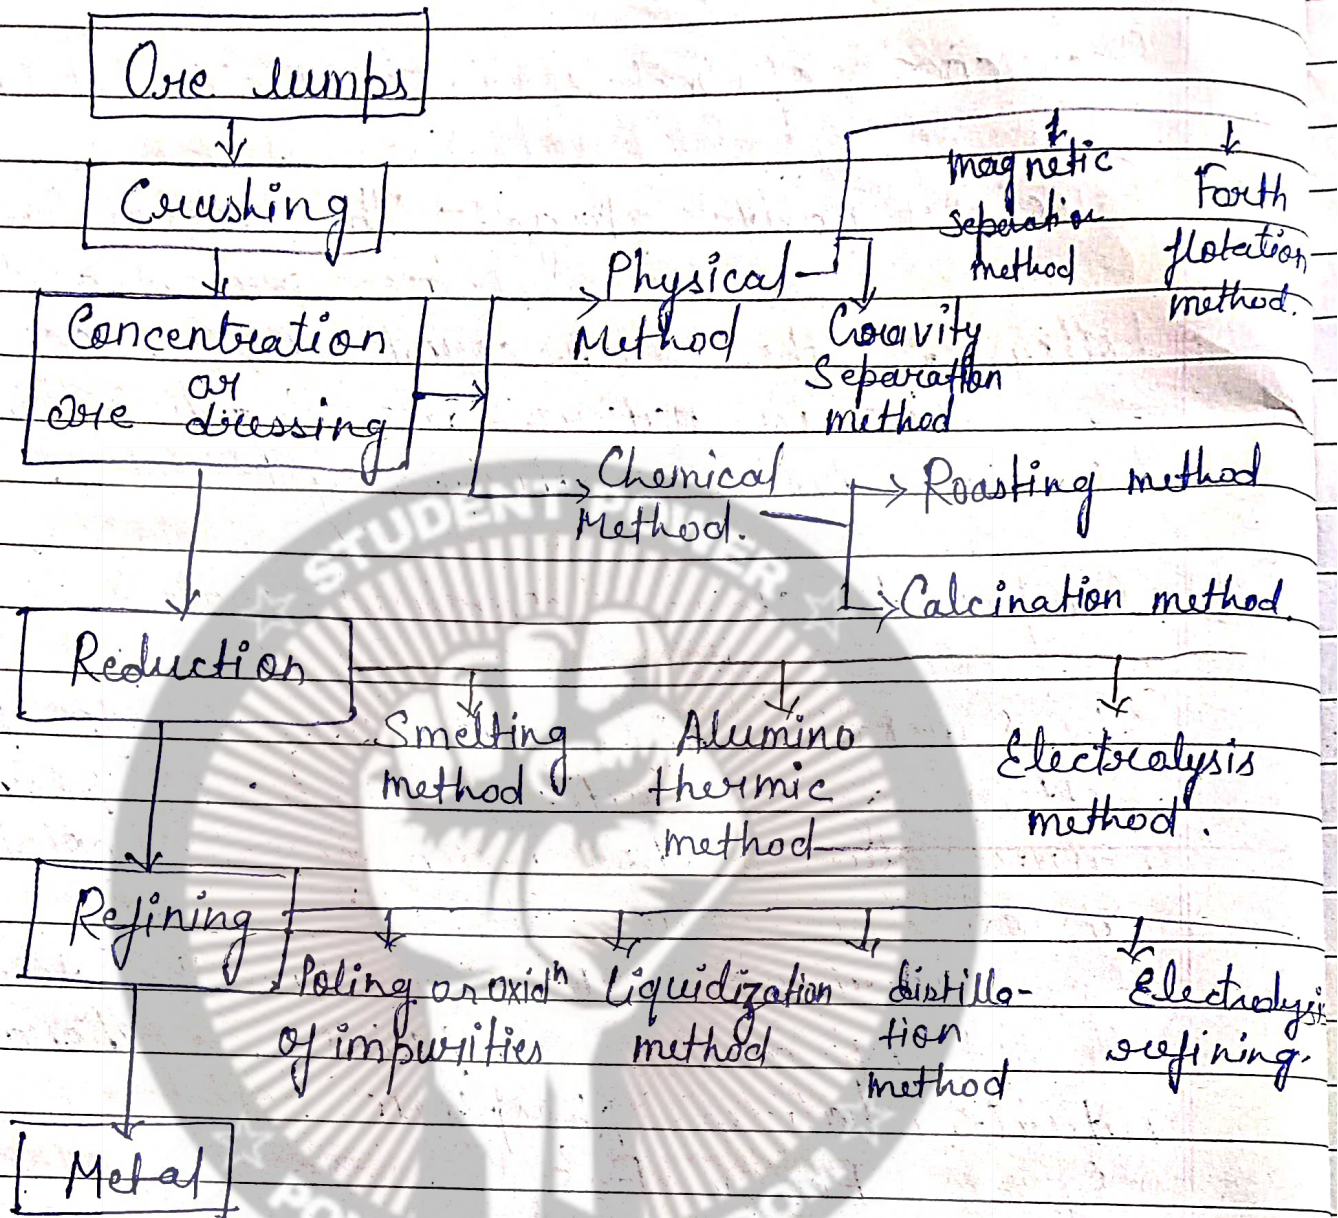 Ore lumps
Crushing
Concentration
or
ore dressing
Physical
Method
Magnetic
seperation
method
Forth
flotation
method.
Gravity
Separation
method
Chemical
Method.
Roasting method
Calcination method.
Reduction
Smelting
method
Alumino
thermic
method
Electrolysis
method.
Refining
Poling or oxidn
of impurities
Liquidization
method
distilla-
tion
method
Electrolysis
refining.
Metal
STUDENT POWER